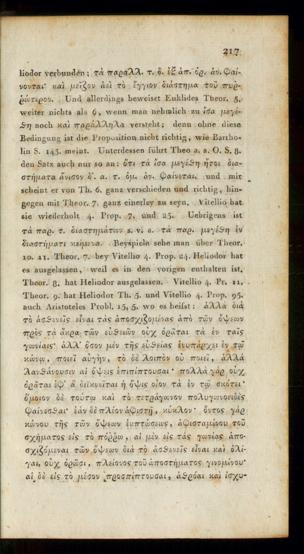 217
liodor verbunden; τὰ παραλλ. τ. δ. ἐξ ἀπ. ὁρ. ἀν. φαί-
νονται· καὶ μεῖζον ἀεὶ τὸ ἔγγιον διάστημα τοῦ πορ-
ρώτερον. Und allerdings beweiset Euklides Theor. 5,
weiter nichts als 6, wenn man nehmlich zu ἴσα μεγέ-
θη noch καὶ παράλληλα versteht; denn ohne diese
Bedingung ist die Proposition nicht richtig, wie Bartho-
lin S. 145. meint. Unterdessen führt Theo a. a. O. S. 8.
den Satz auch nur so an: ὅτι τὰ ἴσα μεγέθη ἤτοι δια-
στήματα ἄνισον δ'. α. τ. ὀμ. ἀν. φαίνεται und mit
scheint er von Th. 6. ganz verschieden und richtig, hin-
gegen mit Theor. 7. ganz einerley zu seyn. Vitellio hat
sie wiederholt 4. Prop. 7. und 25. Uebrigens ist
τὰ παρ. τ. διαστημάτων s. v. a. τὰ παρ. μεγέθη ἐν
διαστήματι κείμενα. Beyspiele sehe man über Theor.
10. 21. Theor. 7. bey Vitellio 4. Prop. 24. Heliodor hat
es ausgelassen, weil es in den vorigen enthalten ist.
Theor. 8. hat Heliodor ausgelassen. Vitellio 4. Pr. 11,
Theor. 9. hat Heliodor Th. 5. und Vitellio 4. Prop. 95,
auch Aristoteles Probl. 15, 5. wo es heifst: ἀλλὰ διὰ
τὸ ἀσθενεῖς εἶναι τὰς ἀποσχιζομένας ἀπὸ τῶν ὄψεων
πρὸς τὰ ἄκρα τῶν εὐθειῶν οὐχ ὁρᾶται τὰ ἐν ταῖς
γωνίαις· ἀλλ' ὅσον μὲν τῆς εὐθείας ἐνυπάρχει ἐν τῷ
κώνῳ, ποιεῖ αὐγὴν, τὸ δὲ λοιπὸν οὐ ποιεῖ, ἀλλὰ
λανθάνουσιν αἱ ὄψεις ἐπιπίπτουσαι· πολλὰ γὰρ οὐχ
ὁρᾶται ἐφ' ἃ δεικνεῖται ἡ ὄψις οἷον τὰ ἐν τῷ σκότει·
ὅμοιον δὲ τούτῳ καὶ τὸ τετράγωνον πολυγωνοειδὲς
φαίνεσθαι· ἐὰν δὲ πλέον ἀφιστῇ, κύκλον· ὄντος γὰρ
κώνου τῆς τῶν ὄψεων ἐμπτώσεως, ἀφισταμένου τοῦ
σχήματος εἰς τὸ πόῤῥω, αἱ μὲν εἰς τὰς γωνίας ἀπο-
σχιζόμεναι τῶν ὄψεων διὰ τὸ ἀσθενεῖς εἶναι καὶ ὀλί-
γαι, οὐχ ὁρῶσι, πλείονος τοῦ ἀποστήματος γινομένου·
αἱ δὲ εἰς τὸ μέσον προσπίπτουσαι, ἀθρόαι καὶ ἰσχυ-